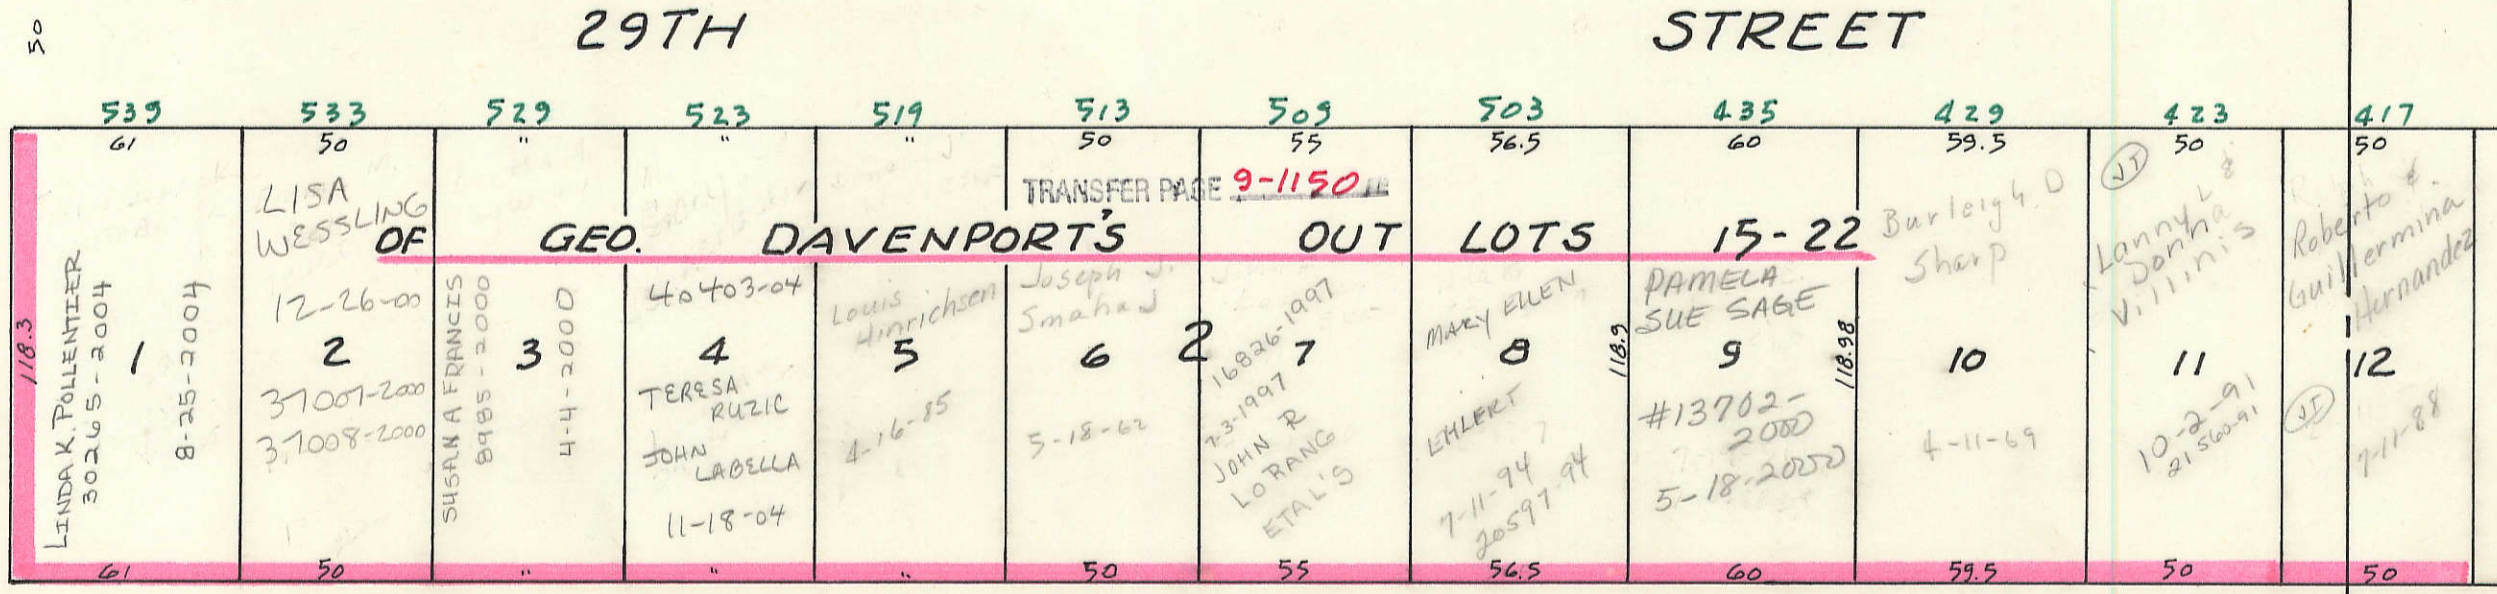 50
29TH STREET
539 533 529 523 519 513 509 503 435 429 423 417
61 50 " " " 50 55 56.5 60 59.5 50 50
TRANSFER PAGE 9-1150
OF GEO. DAVENPORT'S OUT LOTS 15-22
118.3
LINDA K. POLLENTIER
30265-2004
8-25-2004
1
LISA
WESSLING
12-26-00
2
37007-2000
37008-2000
SUSAN A FRANCIS
8985-2000
4-4-2000
3
40403-04
4
TERESA
RUZIC
JOHN
LABELLA
11-18-04
Louis
Hinrichsen
5
4-16-85
Joseph J.
Smaha J
6
5-18-62
2
16826-1997
7
7-3-1997
JOHN R
LORANG
ETAL'S
MARY ELLEN
8
EHLERT
7-11-94
20597-94
118.9
PAMELA
SUE SAGE
9
#13702-
2000
5-18-2000
118.98
Burleigh D
Sharp
10
4-11-69
JT
Lanny L &
Donna
Villinis
11
10-2-91
21560-91
Roberto &
Guillermina
Hernandez
12
JT
7-11-88
61 50 " " " 50 55 56.5 60 59.5 50 50